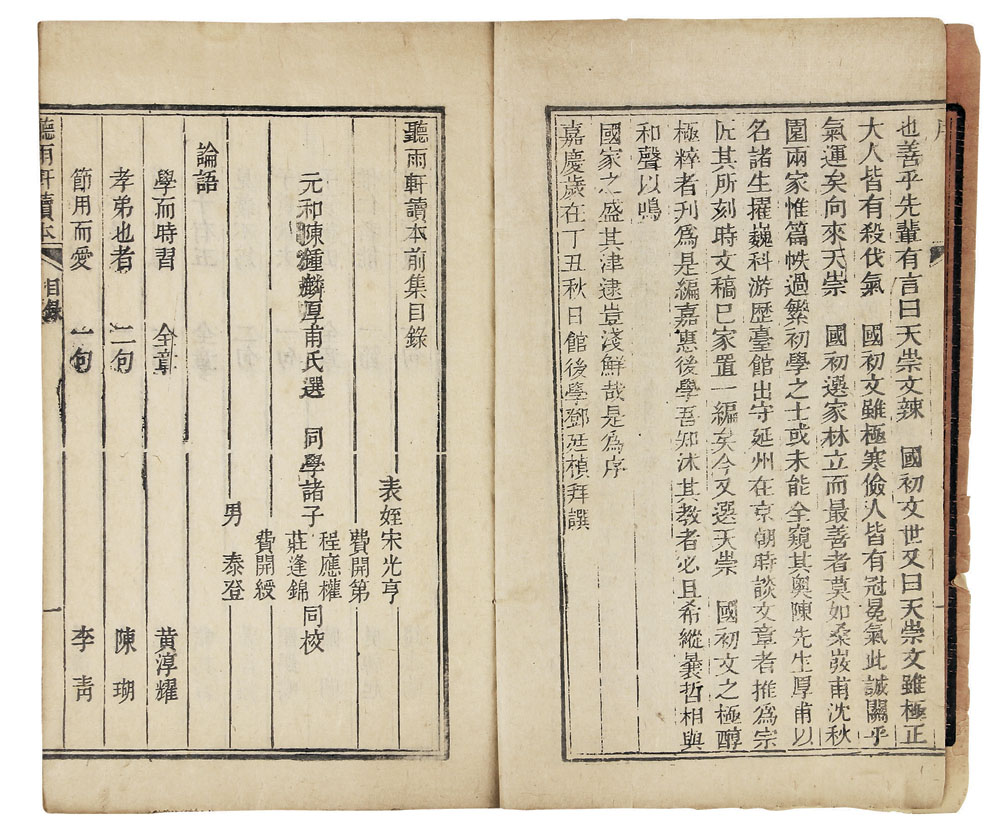 序
也善乎先輩有言曰天崇文辣　國初文世又曰天崇文雖極正
大人皆有殺伐氣　國初文雖極寒儉人皆有冠冕氣此誠關乎
氣運矣向來天崇　國初選家林立而最善者莫如桑弢甫沈秋
園兩家惟篇帙過繁初學之士或未能全窺其奧陳先生厚甫以
名諸生擢巍科游歷臺館出守延州在京朝時談文章者推為宗
匠其所刻時文稿已家置一編矣今又選天崇　國初文之極醇
極粹者刋為是編嘉惠後學吾知沐其教者必且希縱曩哲相與
和聲以鳴
國家之盛其津逮豈淺鮮哉是為序
嘉慶歲在丁丑秋日館後學鄧廷楨拜譔
聽雨軒讀本前集目錄
表姪宋光亨
費開第
元和陳鍾麟厚甫氏選　同學諸子程應權同校
莊逢錦
費開綬
男　泰登
論語
學而時習　全章　黄淳耀
孝弟也者　二句　陳　瑚
節用而愛　一句　李　青
聽雨軒讀本　目錄　一